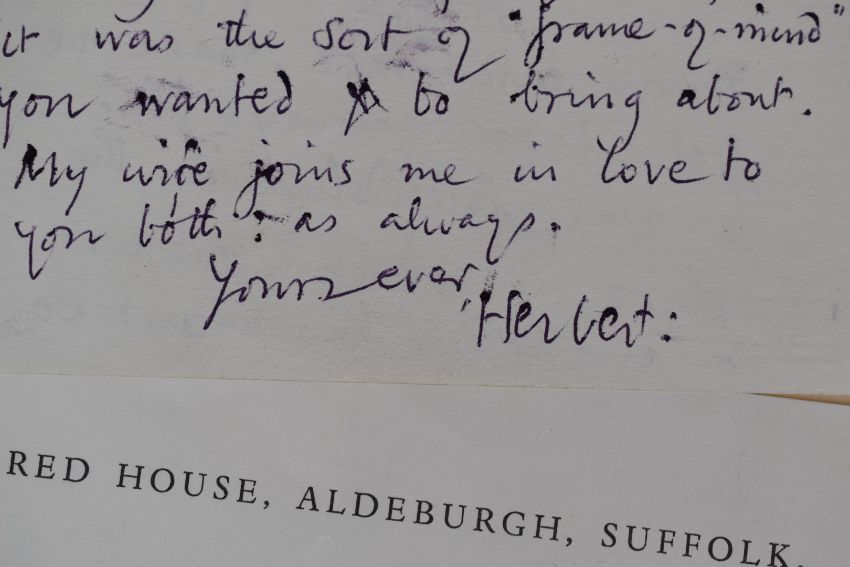 it was the sort of "frame-of-mind"
you wanted to bring about.
My wife joins me in love to
you both: as always.
Yours ever,
Herbert:
RED HOUSE, ALDEBURGH, SUFFOLK.